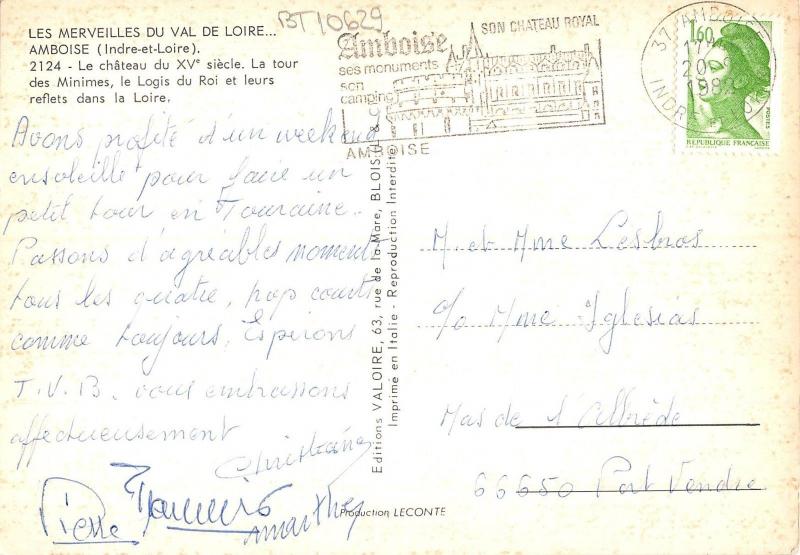 LES MERVEILLES DU VAL DE LOIRE...
AMBOISE (Indre-et-Loire).
2124 - Le château du XVe siècle. La tour
des Minimes, le Logis du Roi et leurs
reflets dans la Loire.
BT10629
Amboise
ses monuments
son
camping
SON CHATEAU ROYAL
AMBOISE
37 AMBOISE
17
20
INDRE
1,60
POSTES
REPUBLIQUE FRANÇAISE
Avons profité d'un weekend
ensoleillé pour faire un
petit tour en Touraine.
Passons d'agréables moments
tous les quatre, trop courts
comme toujours. Espérons
T.V.B. vous embrassons
affectueusement
Christiane
Pierre
Editions VALOIRE, 63, rue de la Mare, BLOIS
Imprimé en Italie - Reproduction Interdite
Production LECONTE
M. et Mme Lesbros
c/o Mme Iglesias
Mas de l'Albrède
66650 Port Vendre